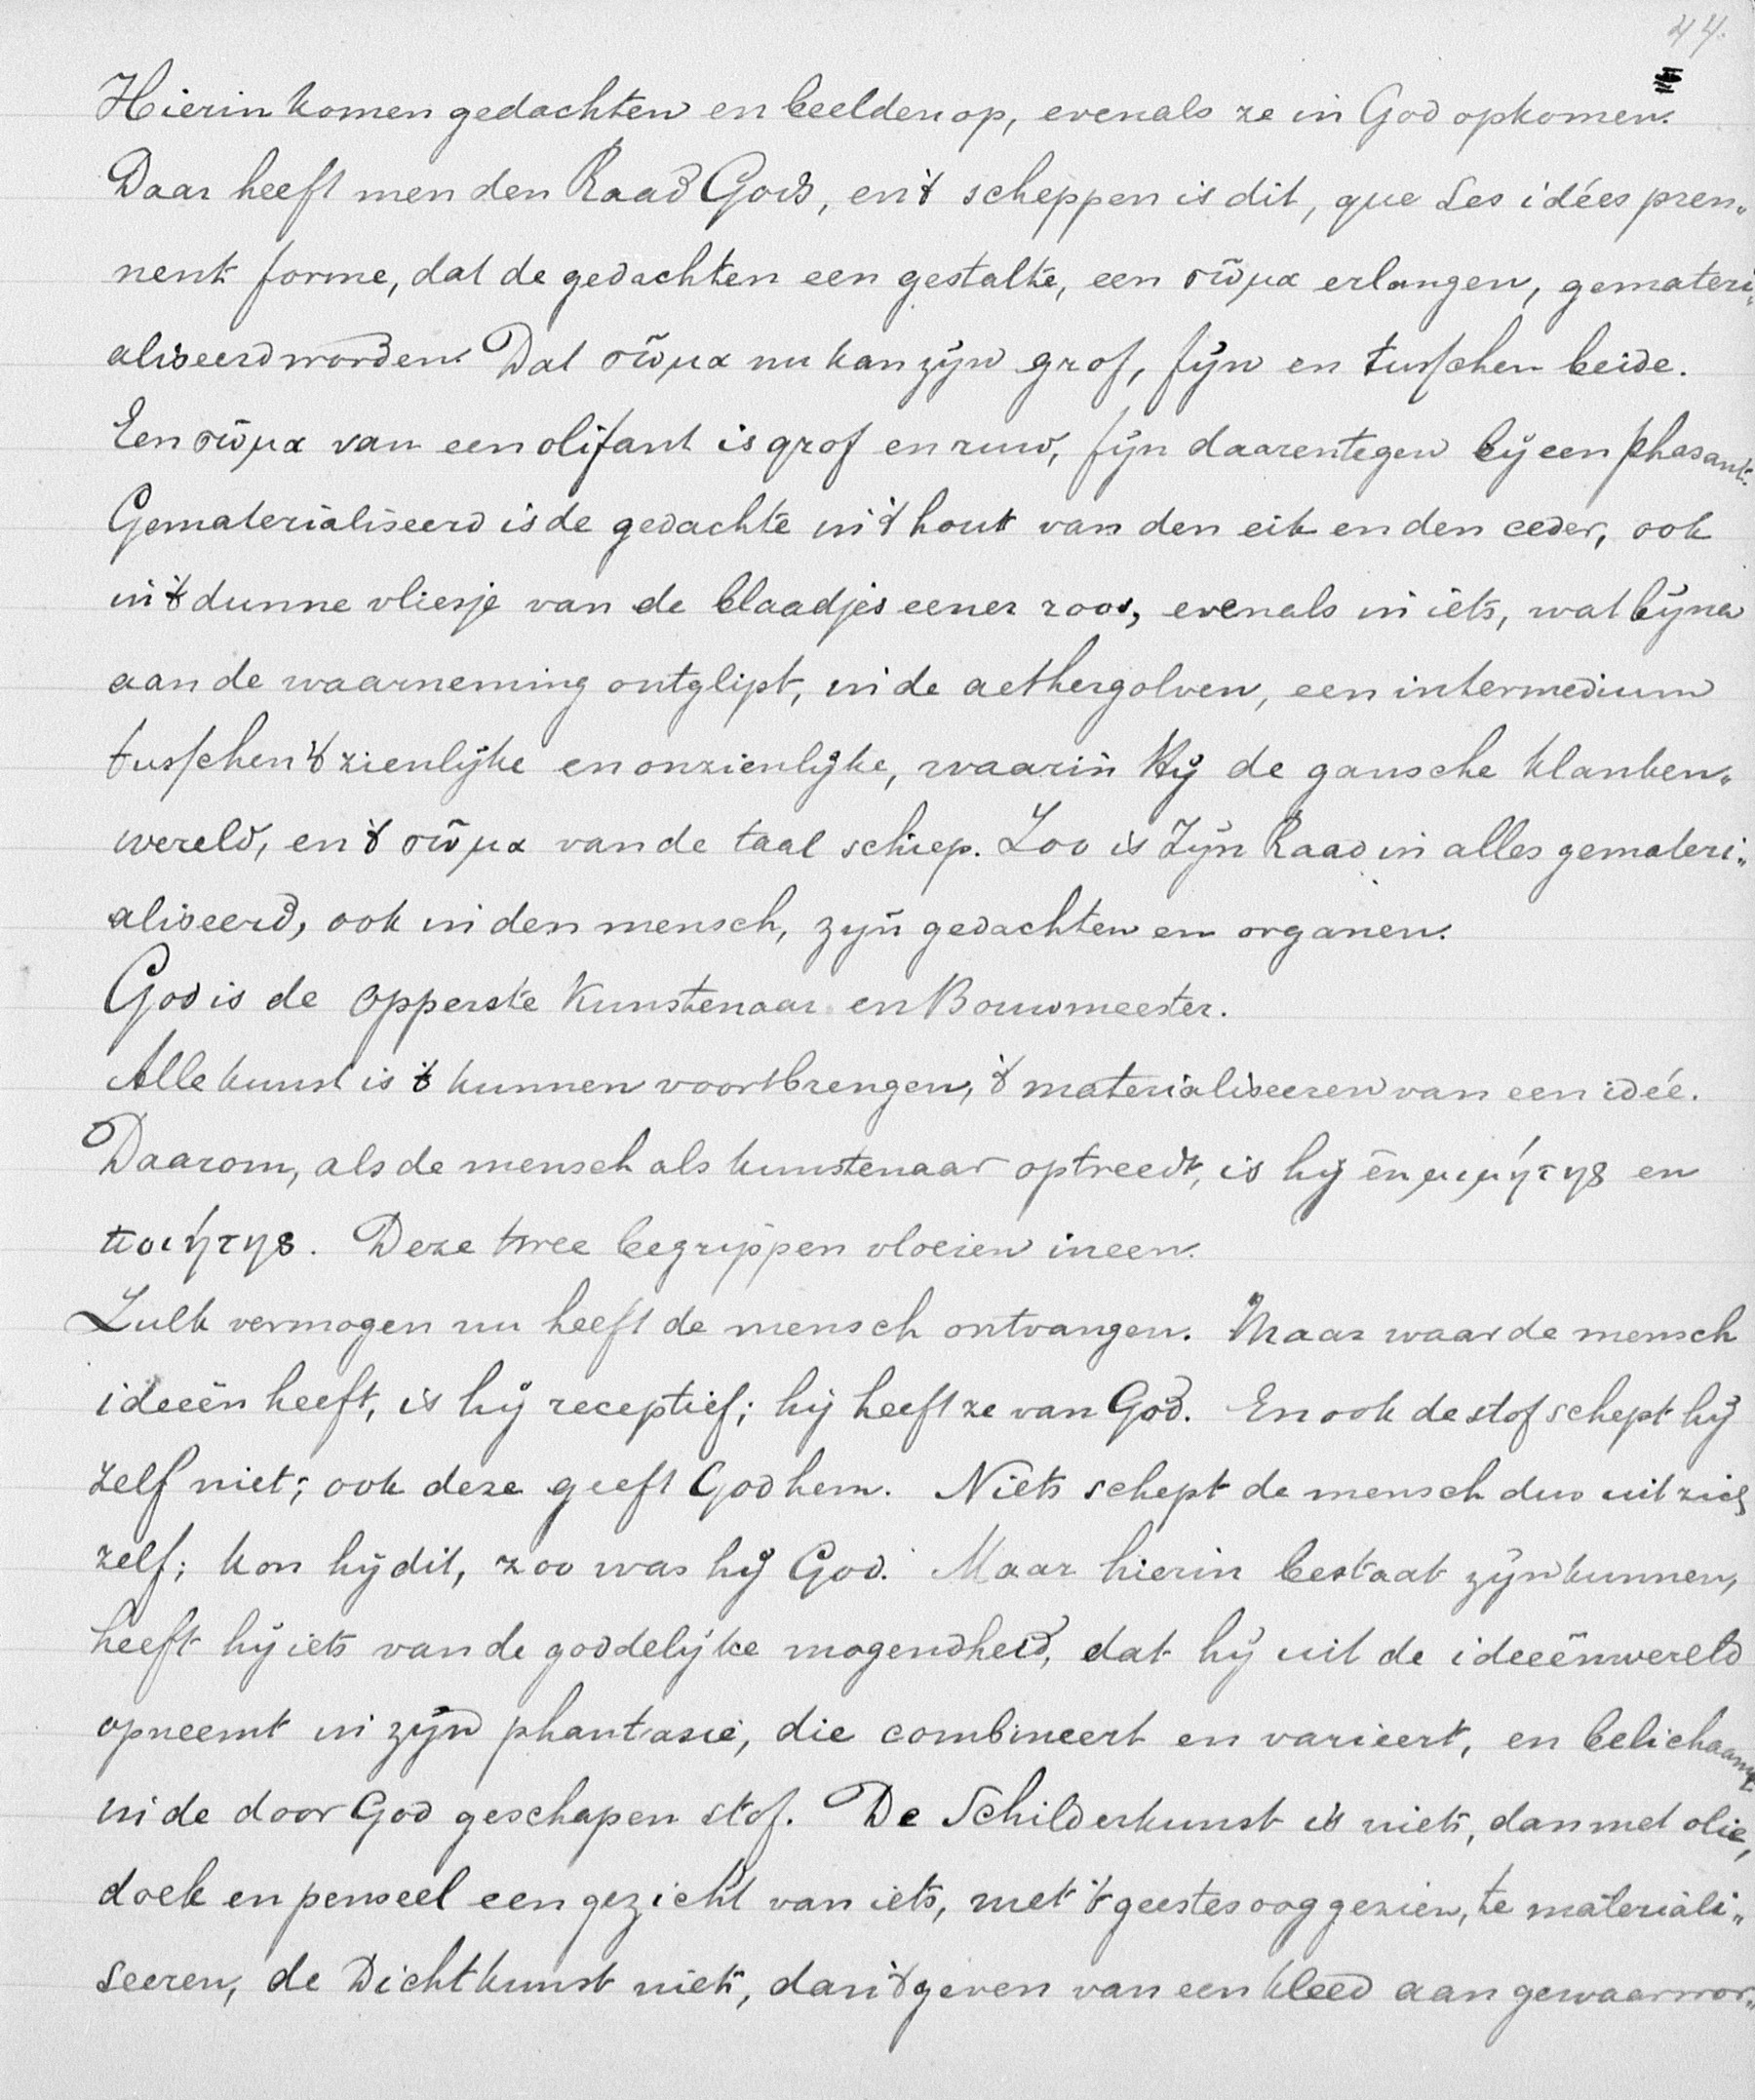 44.
Hierin komen gedachten en beelden op, evenals ze in God opkomen.
Daar heeft men den Raad Gods, en 't scheppen is dit, que les idées pren„
nent forme, dat de gedachten een gestalte, een σῶμα erlangen, gemateri„
aliseerd worden. Dat σῶμα nu kan zijn grof, fijn en tusschen beide.
Een σῶμα van een olifant is grof en ruw, fijn daarentegen bij een phasant.
Gematerialiseerd is de gedachte in 't hout van den eik en den ceder, ook
in 't dunne vliesje van de blaadjes eener roos, evenals in iets, wat bijna
aan de waarneming ontglipt, in de aethergolven, een intermedium
tusschen 't zienlijke en onzienlijke, waarin Hij de gansche klanken„
wereld, en 't σῶμα van de taal schiep. Zoo is Zijn Raad in alles gemateri„
aliseerd, ook in den mensch, zijn gedachten en organen.
God is de Opperste Kunstenaar en Bouwmeester.
Alle kunst is 't kunnen voortbrengen, 't materialiseeren van een idée.
Daarom, als de mensch als kunstenaar optreedt, is hij èn μιμήτης en
ποιήτης. Deze twee begrippen vloeien ineen.
Zulk vermogen nu heeft de mensch ontvangen. Maar waar de mensch
ideeën heeft, is hij receptief; hij heeft ze van God. En ook de stof schept hij
zelf niet; ook deze geeft God hem. Niets schept de mensch dus uit zich
zelf; kon hij dit, zoo was hij God. Maar hierin bestaat zijn kunnen,
heeft hij iets van de goddelijke mogendheid, dat hij uit de ideeënwereld
opneemt in zijn phantasie, die combineert en varieert, en belichaamt
in de door God geschapen stof. De Schilderkunst is niets, dan met olie,
doek en penseel een gezicht van iets, met 't geestesoog gezien, te materiali„
seeren, de Dichtkunst niets, dan 't geven van een kleed aan gewaarwor„